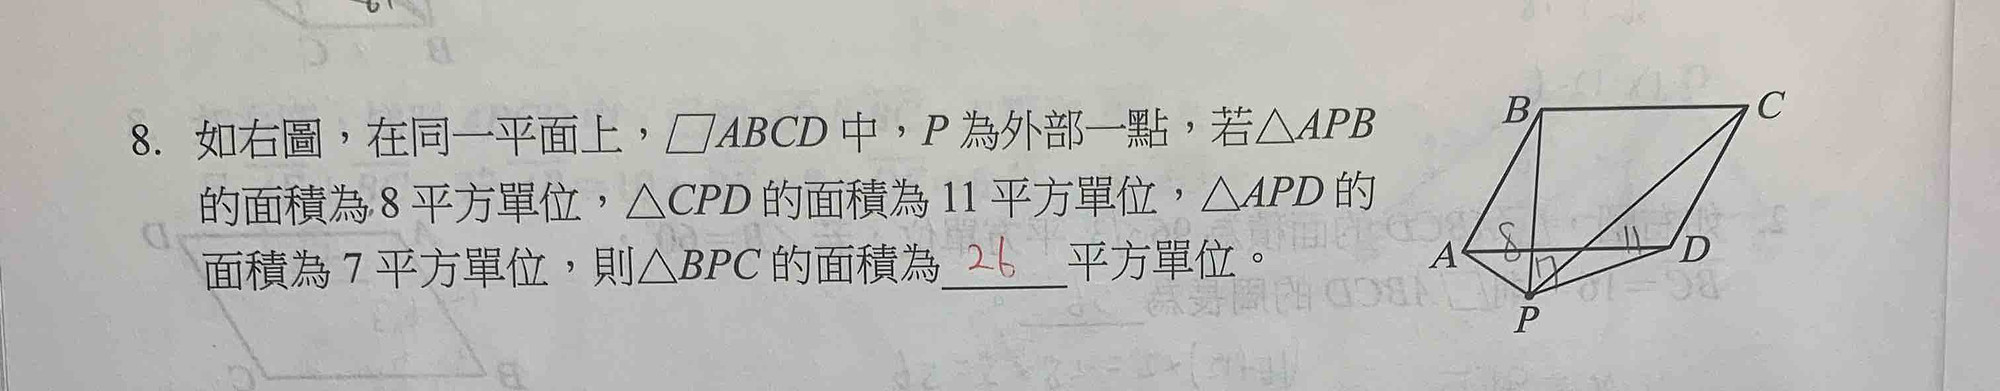 8. 如右圖，在同一平面上，▱ABCD 中，P 為外部一點，若△APB
的面積為 8 平方單位，△CPD 的面積為 11 平方單位，△APD 的
面積為 7 平方單位，則△BPC 的面積為 26 平方單位。
B
C
A
8
11
D
7
P